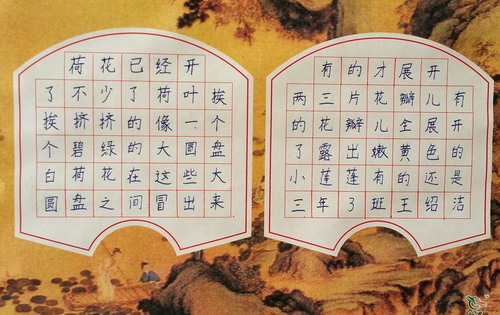 荷花已经开
了不少了荷叶挨
挨挤挤的像一个
个碧绿的大圆盘
白荷花在这些大
圆盘之间冒出来
有的才展开
两三片花瓣儿有
的花瓣儿全展开
了露出嫩黄色的
小莲莲有的还是
三年3班王绍洁